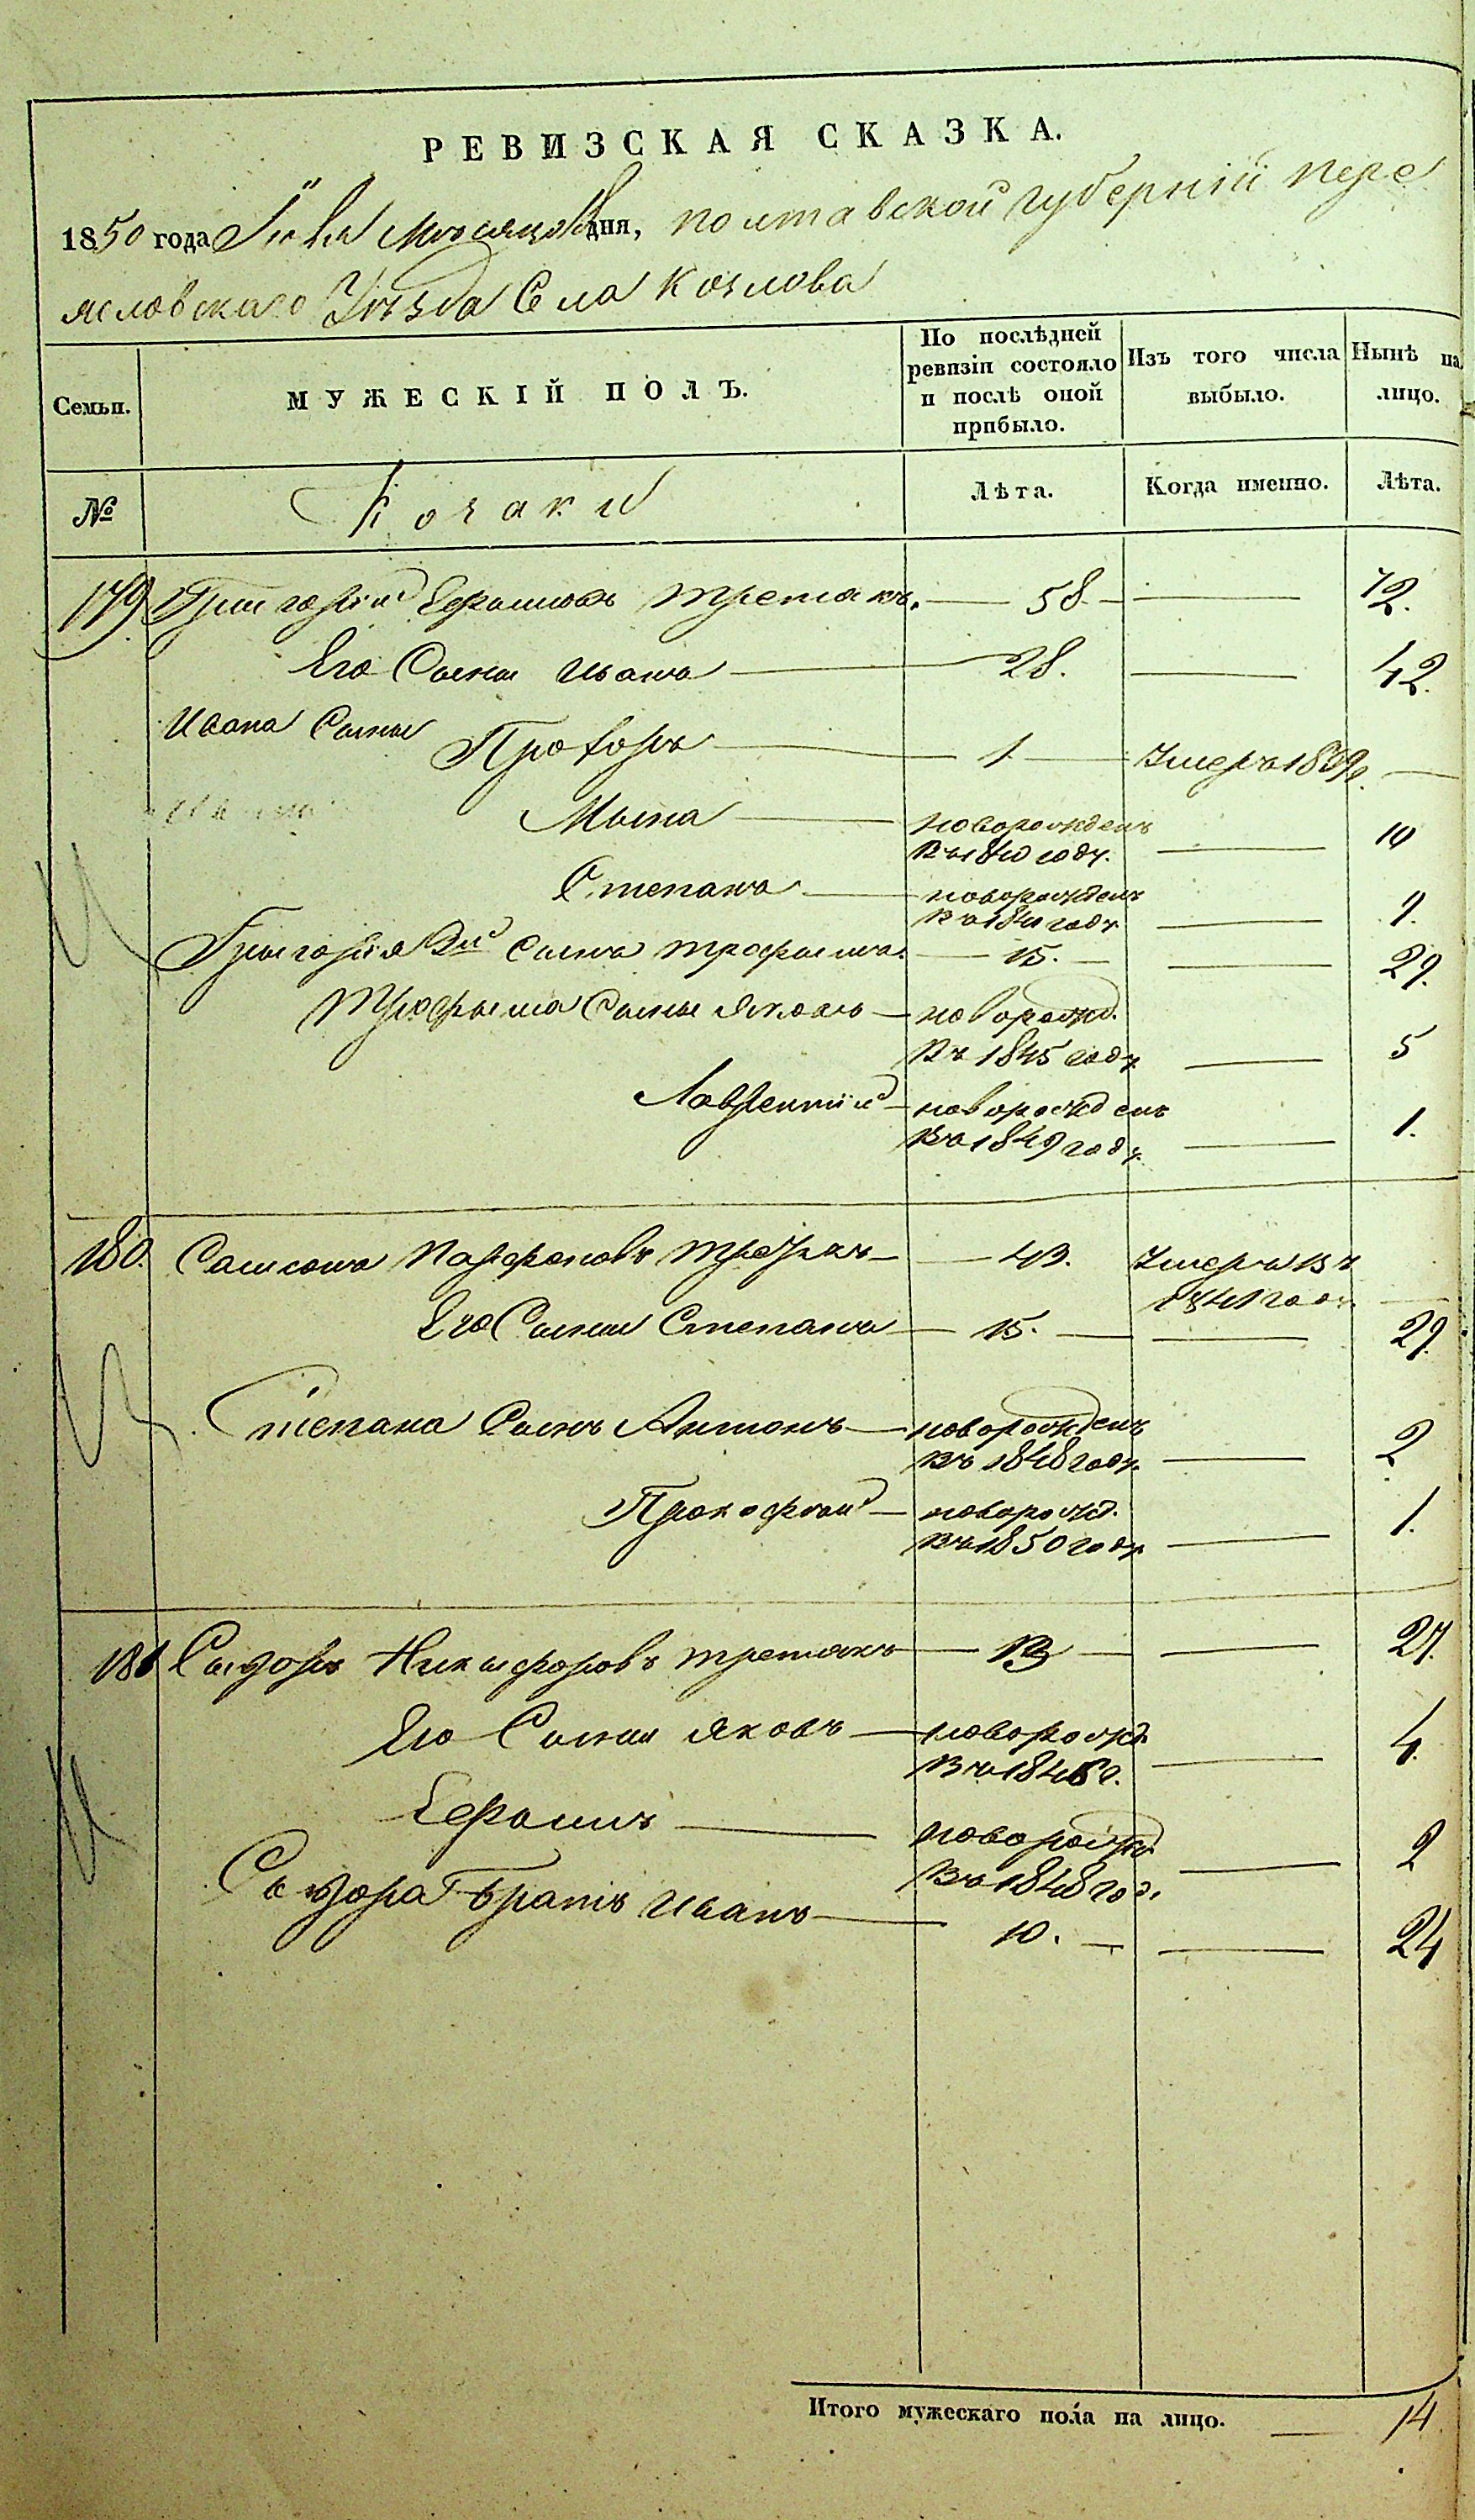 РЕВИЗСКАЯ СКАЗКА.
1850 года Іюля Мѣсяца дня, полтавской губерніи пере
яславскаго Уѣзда Села Козлова
Семьи. МУЖЕСКІЙ ПОЛЪ. По послѣдней ревизіи состояло и послѣ оной прибыло. Изъ того числа выбыло. Нынѣ на лицо.
№ Козаки Лѣта. Когда именно. Лѣта.
179 Григорій Ефимовъ Третякъ. 58. 72.
Его Сыны Иванъ 28. 42.
Ивана Сыны Прохоръ 1 Умеръ 1839г.
Мына новорожденъ въ 1840 году. 10
Степанъ новорожденъ въ 1841 году. 9.
Григорія 2й Сынъ трофимъ. 15. 29.
Трофыма Сыны Яковъ новорожд. въ 1845 году 5
Лаврентій новорожденъ въ 1849 году. 1.
180. Самсонъ Парфеновъ Третякъ 43. Умеръ въ 1841 году.
Его Сыны Степанъ 15. 29.
Степана Сынъ Антонъ новорожденъ въ 1848 году. 2
Прокофій новорожд. въ 1850 году. 1.
181 Сыдоръ Никифоровъ третякъ 13 27.
Его Сыны Яковъ новорожд. въ 1846 г. 4.
Ефимъ новорожд. въ 1848 год. 2
Сыдора Братъ Иванъ 10. 24
Итого мужескаго пола на лицо. 14